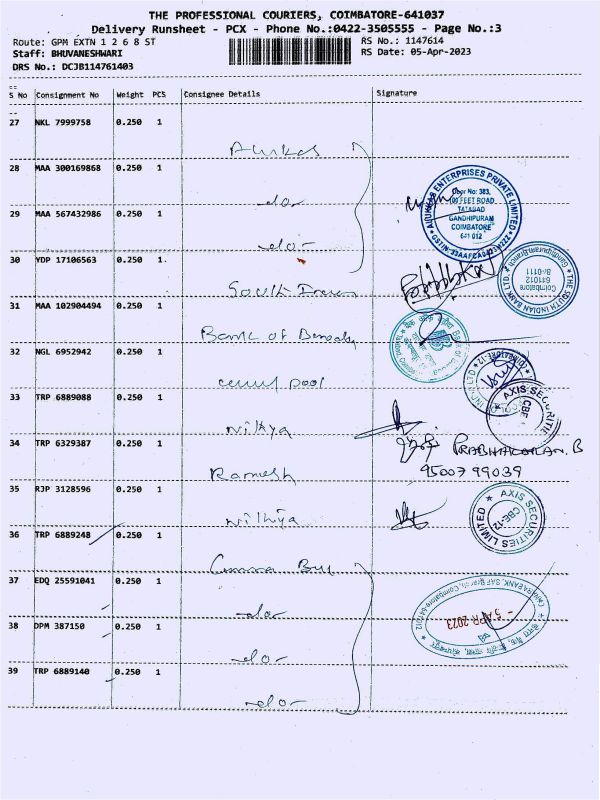 THE PROFESSIONAL COURIERS, COIMBATORE-641037
Delivery Runsheet - PCX - Phone No.:0422-3505555 - Page No.:3
Route: GPM EXTN 1 2 6 8 ST
RS No.: 1147614
Staff: BHUVANESHWARI
RS Date: 05-Apr-2023
DRS No.: DCJB114761403
S No Consignment No Weight PCS Consignee Details Signature
27 NKL 7999758 0.250 1
28 MAA 300169868 0.250 1 -do-
29 MAA 567432986 0.250 1 -do-
30 YDP 17106563 0.250 1 South Indian
31 MAA 102904494 0.250 1 Bank of Baroda
32 NGL 6952942 0.250 1
33 TRP 6889088 0.250 1 Nithya
34 TRP 6329387 0.250 1 Ramesh PRABHAKARAN.B
95007 99039
35 RJP 3128596 0.250 1 Nithiya
36 TRP 6889248 0.250 1
37 EDQ 25591041 0.250 1 -do-
38 DPM 387150 0.250 1 -do-
39 TRP 6889140 0.250 1 -do-
ENTERPRISES PRIVATE LIMITED
Door No: 383,
100 FEET ROAD,
TATABAD
GANDHIPURAM
COIMBATORE
641 012
THE SOUTH INDIAN BANK LTD.
Gandhipuram Branch
Coimbatore
641012
B-0111
AXIS SECURITIE
CBE
AXIS SECURITIES LIMITED
CBE-12
CANARA BANK, SAF Branch, Coimbatore-641012
- 5 APR 2023